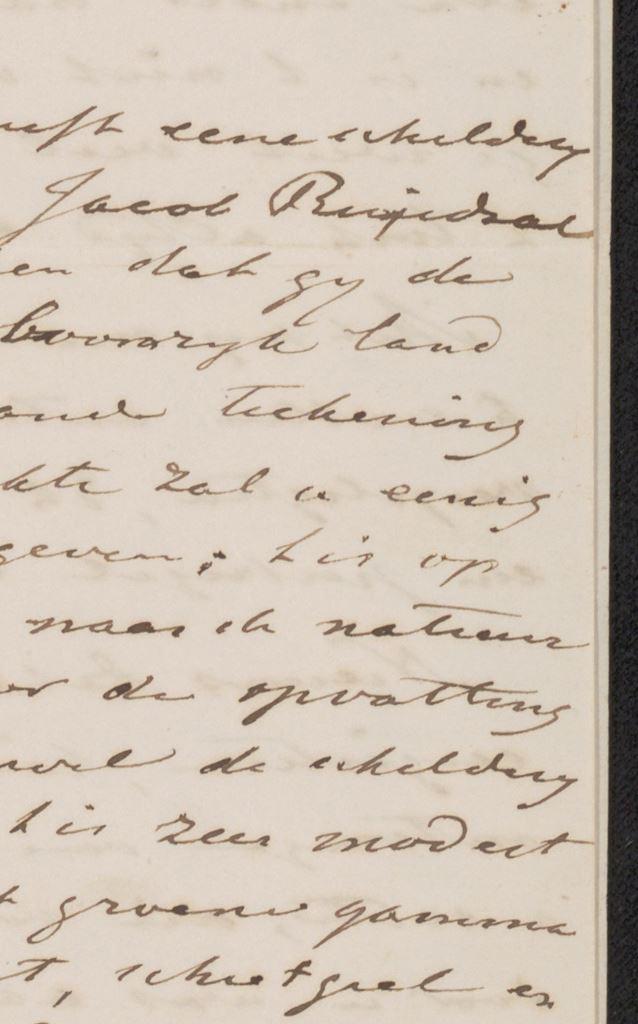 eene schildery
Jacob Ruijsdael
en dat gy de
boomryk land
teekening
zal u eenig
geven; t is op
naar de natuur
de opvatting
wel de schildery
t is zeer modest
t groene gamma
t, schietgeel en